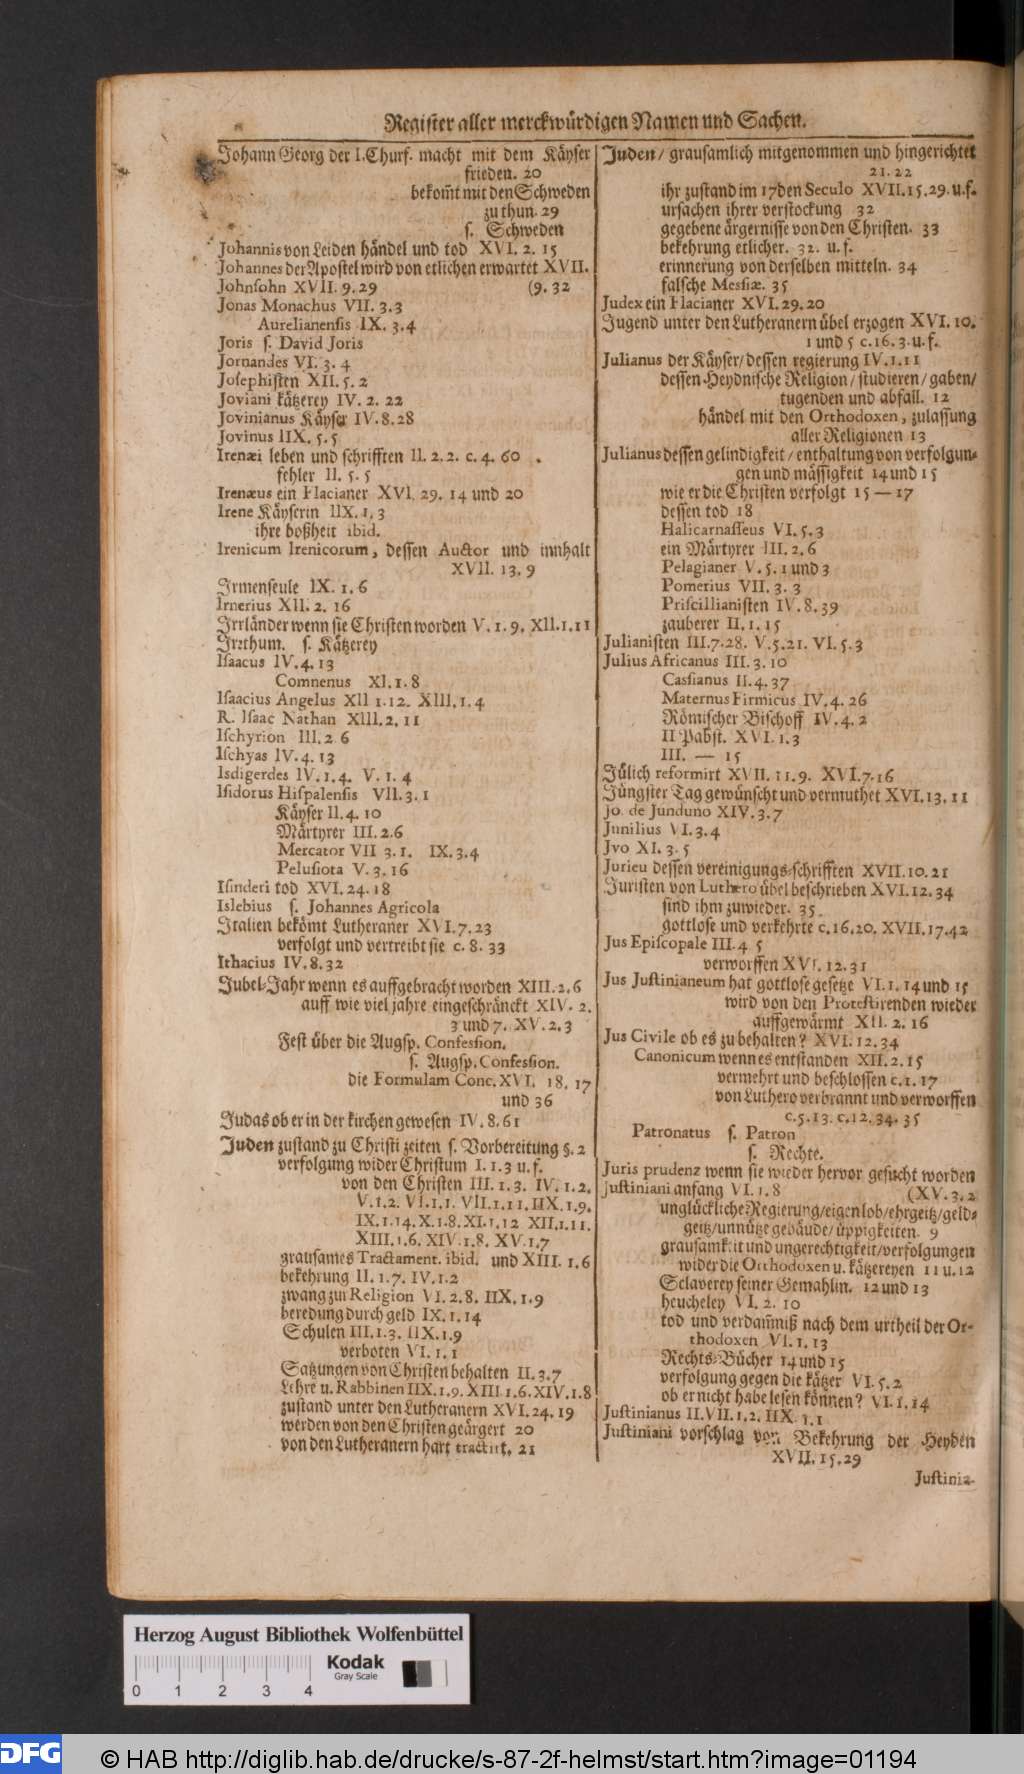 Register aller merckwürdigen Namen und Sachen.
Johann Georg der I. Churf. macht mit dem Käyser
frieden. 20
bekom̃t mit den Schweden
zu thun. 29
s. Schweden
Johannis von Leiden händel und tod XVI. 2. 15
Johannes der Apostel wird von etlichen erwartet XVII.
Johnsohn XVII. 9. 29 (9. 32
Jonas Monachus VII. 3. 3
Aurelianensis IX. 3. 4
Joris s. David Joris
Jornandes VI. 3. 4
Josephisten XII. 5. 2
Joviani kätzerey IV. 2. 22
Jovinianus Käyser IV. 8. 28
Jovinus IIX. 5. 5
Irenæi leben und schrifften II. 2. 2. c. 4. 60
fehler II. 5. 5
Irenæus ein Flacianer XVI. 29. 14 und 20
Irene Käyserin IIX. 1. 3
ihre boßheit ibid.
Irenicum Irenicorum, dessen Auctor und innhalt
XVII. 13. 9
Irmenseule IX. 1. 6
Irnerius XII. 2. 16
Irrländer wenn sie Christen worden V. 1. 9. XII. 1. 11
Irrthum. s. Kätzerey
Isaacus IV. 4. 13
Comnenus XI. 1. 8
Isaacius Angelus XII 1. 12. XIII. 1. 4
R. Isaac Nathan XIII. 2. 11
Ischyrion III. 2 6
Ischyas IV. 4. 13
Isdigerdes IV. 1. 4. V. 1. 4
Isidorus Hispalensis VII. 3. 1
Käyser II. 4. 10
Märtyrer III. 2. 6
Mercator VII 3. 1. IX. 3. 4
Pelusiota V. 3. 16
Isinderi tod XVI. 24. 18
Islebius s. Johannes Agricola
Italien bekömt Lutheraner XVI. 7. 23
verfolgt und vertreibt sie c. 8. 33
Ithacius IV. 8. 32
Jubel-Jahr wenn es auffgebracht worden XIII. 2. 6
auff wie viel jahre eingeschränckt XIV. 2.
3 und 7. XV. 2. 3
Fest über die Augsp. Confession.
s. Augsp. Confession.
die Formulam Conc. XVI. 18. 17
und 36
Judas ob er in der kirchen gewesen IV. 8. 61
Juden zustand zu Christi zeiten s. Vorbereitung §. 2
verfolgung wider Christum I. 1. 3 u. f.
von den Christen III. 1. 3. IV. 1. 2.
V. 1. 2. VI. 1. 1. VII. 1. 11. IIX. 1. 9.
IX. 1. 14. X. 1. 8. XI. 1. 12 XII. 1. 11.
XIII. 1. 6. XIV. 1. 8. XV. 1. 7
grausames Tractament. ibid. und XIII. 1. 6
bekehrung II. 1. 7. IV. 1. 2
zwang zur Religion VI. 2. 8. IIX. 1. 9
beredung durch geld IX. 1. 14
Schulen III. 1. 3. IIX. 1. 9
verboten VI. 1. 1
Satzungen von Christen behalten II. 3. 7
Lehre u. Rabbinen IIX. 1. 9. XIII. 1. 6. XIV. 1. 8
zustand unter den Lutheranern XVI. 24. 19
werden von den Christen geärgert 20
von den Lutheranern hart tractirt. 21
Juden / grausamlich mitgenommen und hingerichtet
21. 22
ihr zustand im 17den Seculo XVII. 15. 29. u. f.
ursachen ihrer verstockung 32
gegebene ärgernisse von den Christen. 33
bekehrung etlicher. 32. u. f.
erinnerung von derselben mitteln. 34
falsche Messiæ. 35
Judex ein Flacianer XVI. 29. 20
Jugend unter den Lutheranern übel erzogen XVI. 10.
1 und 5 c. 16. 3. u. f.
Julianus der Käyser / dessen regierung IV. 1. 11
dessen Heydnische Religion / studieren / gaben /
tugenden und abfall. 12
händel mit den Orthodoxen, zulassung
aller Religionen 13
Julianus dessen gelindigkeit / enthaltung von verfolgun-
gen und mässigkeit 14 und 15
wie er die Christen verfolgt 15 — 17
dessen tod 18
Halicarnasseus VI. 5. 3
ein Märtyrer III. 2. 6
Pelagianer V. 5. 1 und 3
Pomerius VII. 3. 3
Priscillianisten IV. 8. 39
zauberer II. 1. 15
Julianisten III. 7. 28. V. 5. 21. VI. 5. 3
Julius Africanus III. 3. 10
Cassianus II. 4. 37
Maternus Firmicus IV. 4. 26
Römischer Bischoff IV. 4. 2
II Pabst. XVI. 1. 3
III. — 15
Jülich reformirt XVII. 11. 9. XVI. 7. 16
Jüngster Tag gewünscht und vermuthet XVI. 13. 11
Jo. de Junduno XIV. 3. 7
Junilius VI. 3. 4
Jvo XI. 3. 5
Jurieu dessen vereinigungs-schrifften XVII. 10. 21
Juristen von Luthero übel beschrieben XVI. 12. 34
sind ihm zuwieder. 35
gottlose und verkehrte c. 16. 20. XVII. 17. 42
Jus Episcopale III. 4 5
verworffen XVI. 12. 31
Jus Justinianeum hat gottlose gesetze VI. 1. 14 und 15
wird von den Protestirenden wieder
auffgewärmt XII. 2. 16
Jus Civile ob es zu behalten? XVI. 12. 34
Canonicum wenn es entstanden XII. 2. 15
vermehrt und beschlossen c. 1. 17
von Luthero verbrannt und verworffen
c. 5. 13. c. 12. 34. 35
Patronatus s. Patron
s. Rechte.
Juris prudenz wenn sie wieder hervor gesucht worden
Justiniani anfang VI. 1. 8 (XV. 3. 2
unglückliche Regierung / eigen lob / ehrgeitz / geld-
geitz / unnütze gebäude / üppigkeiten. 9
grausamkeit und ungerechtigkeit / verfolgungen
wider die Orthodoxen u. kätzereyen 11 u. 12
Sclaverey seiner Gemahlin. 12 und 13
heucheley VI. 2. 10
tod und verdam̃niß nach dem urtheil der Or-
thodoxen VI. 1. 13
Rechts-Bücher 14 und 15
verfolgung gegen die kätzer VI. 5. 2
ob er nicht habe lesen können? VI. 1. 14
Justinianus II. VII. 1. 2. IIX. 1. 1
Justiniani vorschlag von Bekehrung der Heyden
XVII. 15. 29
Justinia-
Herzog August Bibliothek Wolfenbüttel
Kodak
Gray Scale
0 1 2 3 4
DFG
© HAB http://diglib.hab.de/drucke/s-87-2f-helmst/start.htm?image=01194